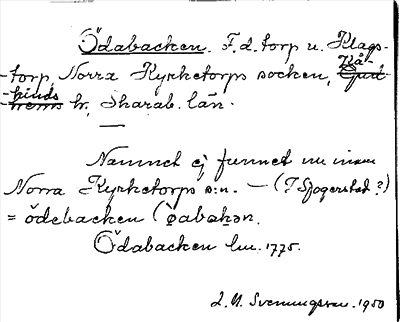 Ödabacken. F.d. torp u. Klags-
-torp, Norra Kyrketorps socken, Kå-
-kinds hr, Skarab. län.
Namnet ej funnet nu inom
Norra Kyrketorps s:n. — (? Sjogerstad?)
= ödebacken (
Ödabacken hm. 1775.
J. A. Svenningsson. 1950